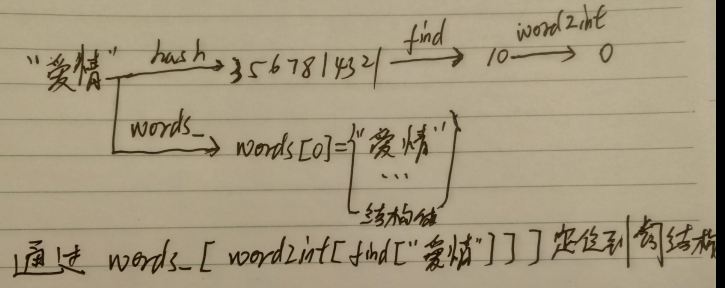 "爱情" hash → 3567814321 find → 10 word2int → 0
words_ → words[0]={"爱情"
...
结构体}
通过 words_[ word2int[find["爱情"]]] 定位到 词结构